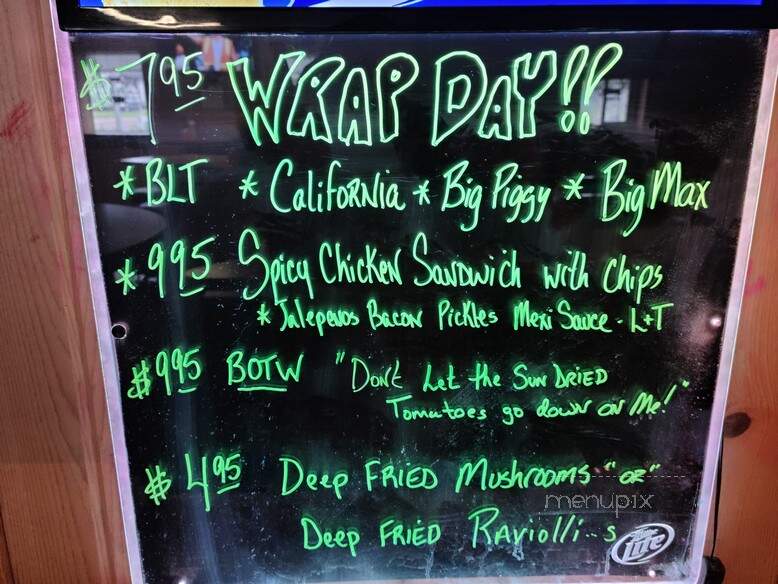 $7.95 WRAP DAY!!
* BLT * California * Big Piggy * Big Max
* 9.95 Spicy Chicken Sandwich with Chips
* Jalepenos Bacon Pickles Mexi Sauce - L+T
$9.95 BOTW "Don't Let the Sun Dried
Tomatoes go down on Me!"
$4.95 Deep Fried Mushrooms "or"
menupix
Deep Fried Raviolli..s
Lite